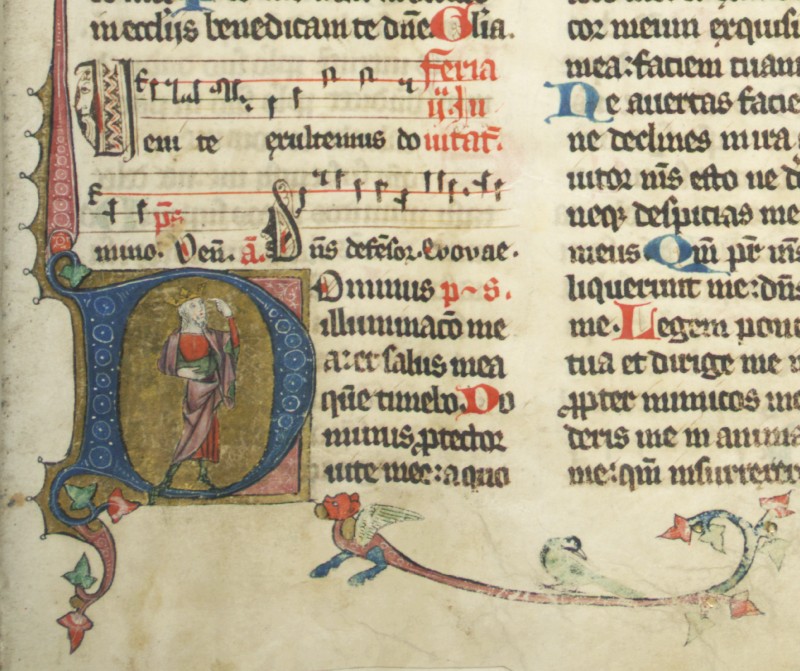 in ecclijs benedicam te dñe. Glia.
feria
ij. In
Uem te exultemus do uitat.
ps
mino. Ven. a. Dñs defensor. Evovae.
Dominus p s.
illuminaco me
a: et salus mea
que timebo. Do
minus ptector
uite mee: a quo
cor meum exquisi
mea: faciem tuam
Ne auertas facie
ne declines in ira
iutor m̄s esto ne d
neqꝫ despicias me
meus Qm̄ pr̄ m̄s
liquerunt me: dn̄s
me. Legem pone
tua et dirige me
ꝓpter inimicos me
deris me in anima
me: qm̄ insurrexer